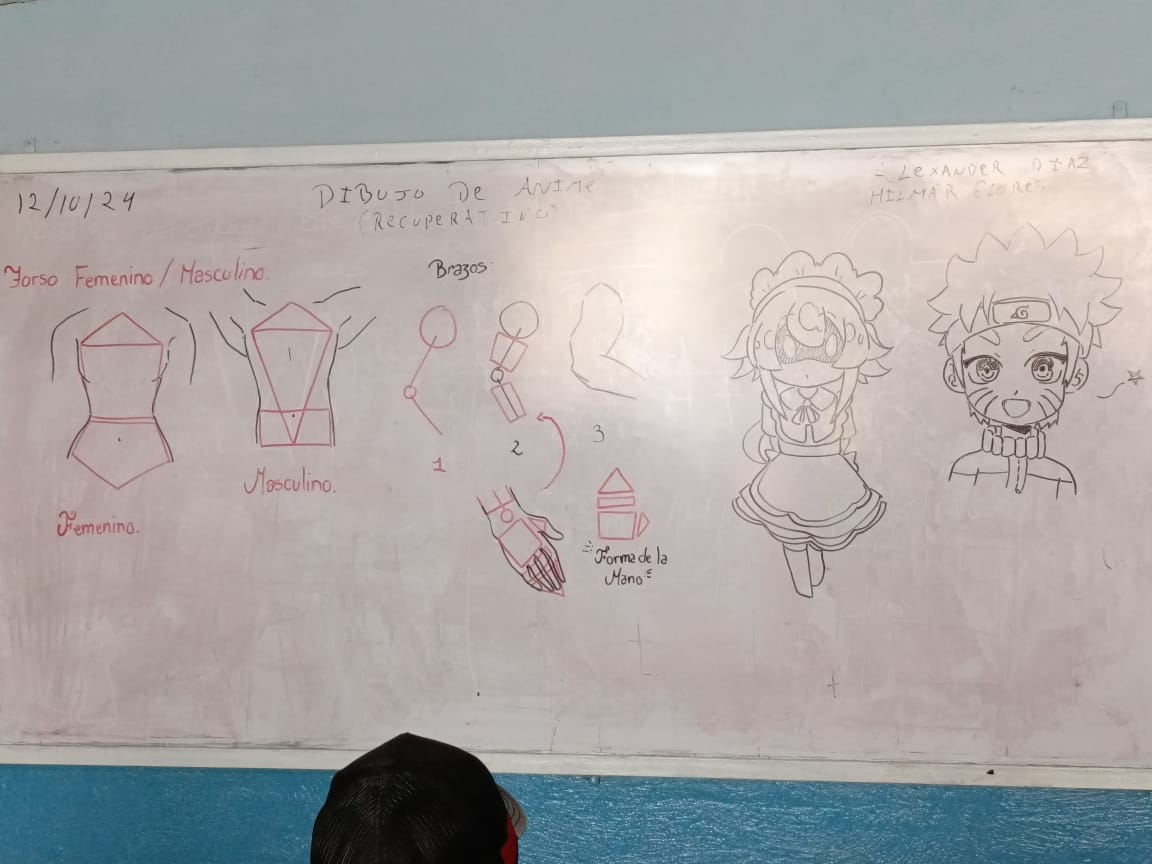 12/10/24
DIBUJO DE ANIME
(RECUPERATIVO)
LEXANDER DIAZ
HILMAR FLORES
Torso Femenino / Masculino.
Brazos:
Femenino.
Masculino.
1
2
3
"Forma de la
Mano"